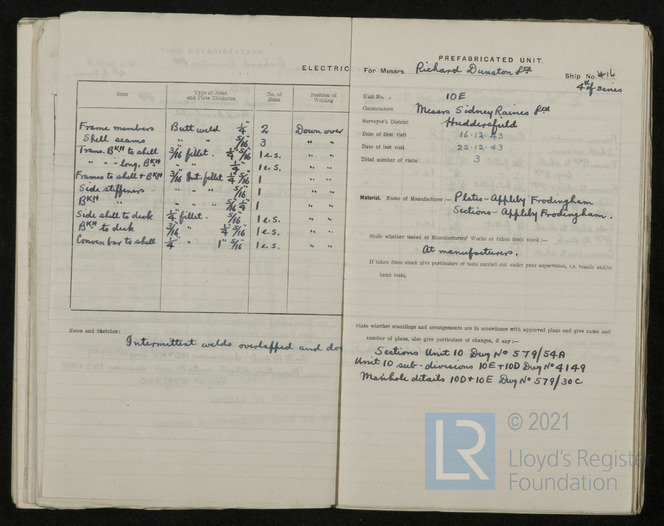 ELECTRIC
Item Type of Joint and Plate Thickness No. of Runs Position of Welding
Frame members Butt weld 1/4" 2 Down over
Shell seams " " 5/16" 3 " "
Trans. BKH to shell 3/16" fillet. 1/4" 5/16" 1 e.s. " "
" " long. BKH " " 1/4" 1 e.s. " "
Frames to shell + BKH 3/16" Int. fillet 1/4" 5/16" 1 " "
Side stiffeners " " " 5/16" 1 " "
BKH " " " " 5/16" 1/4" 1 " "
Side shell to deck 1/4" fillet. 5/16" 1 e.s. " "
BKH to deck 3/16" " 1/4" 5/16" 1 e.s. " "
Convex bar to shell 1/4" " 1" 5/16" 1 e.s. " "
Notes and Sketches:
Intermittent welds overlapped and do
PREFABRICATED UNIT.
For Messrs. Richard Dunston Ltd
Ship No. 16
4th of series
Unit No. 10E
Constructors Messrs Sidney Raines Ltd
Surveyor's District Huddersfield
Date of first visit 16.12.43
Date of last visit 22.12.43
Total number of visits 3
Material. Name of Manufacturer :— Plates - Appleby Frodingham
Sections - Appleby Frodingham.
State whether tested at Manufacturers' Works or taken from stock :—
At manufacturers.
If taken from stock give particulars of tests carried out under your supervision, i.e. tensile and/or
bend tests.
State whether scantlings and arrangements are in accordance with approved plans and give name and
number of plans, also give particulars of changes, if any :—
Sections Unit 10 Dwg No 579/54A
Unit 10 sub-divisions 10E + 10D Dwg No 4149
Manhole details 10D + 10E Dwg No 579/30C
© 2021
LR
Lloyd's Register
Foundation